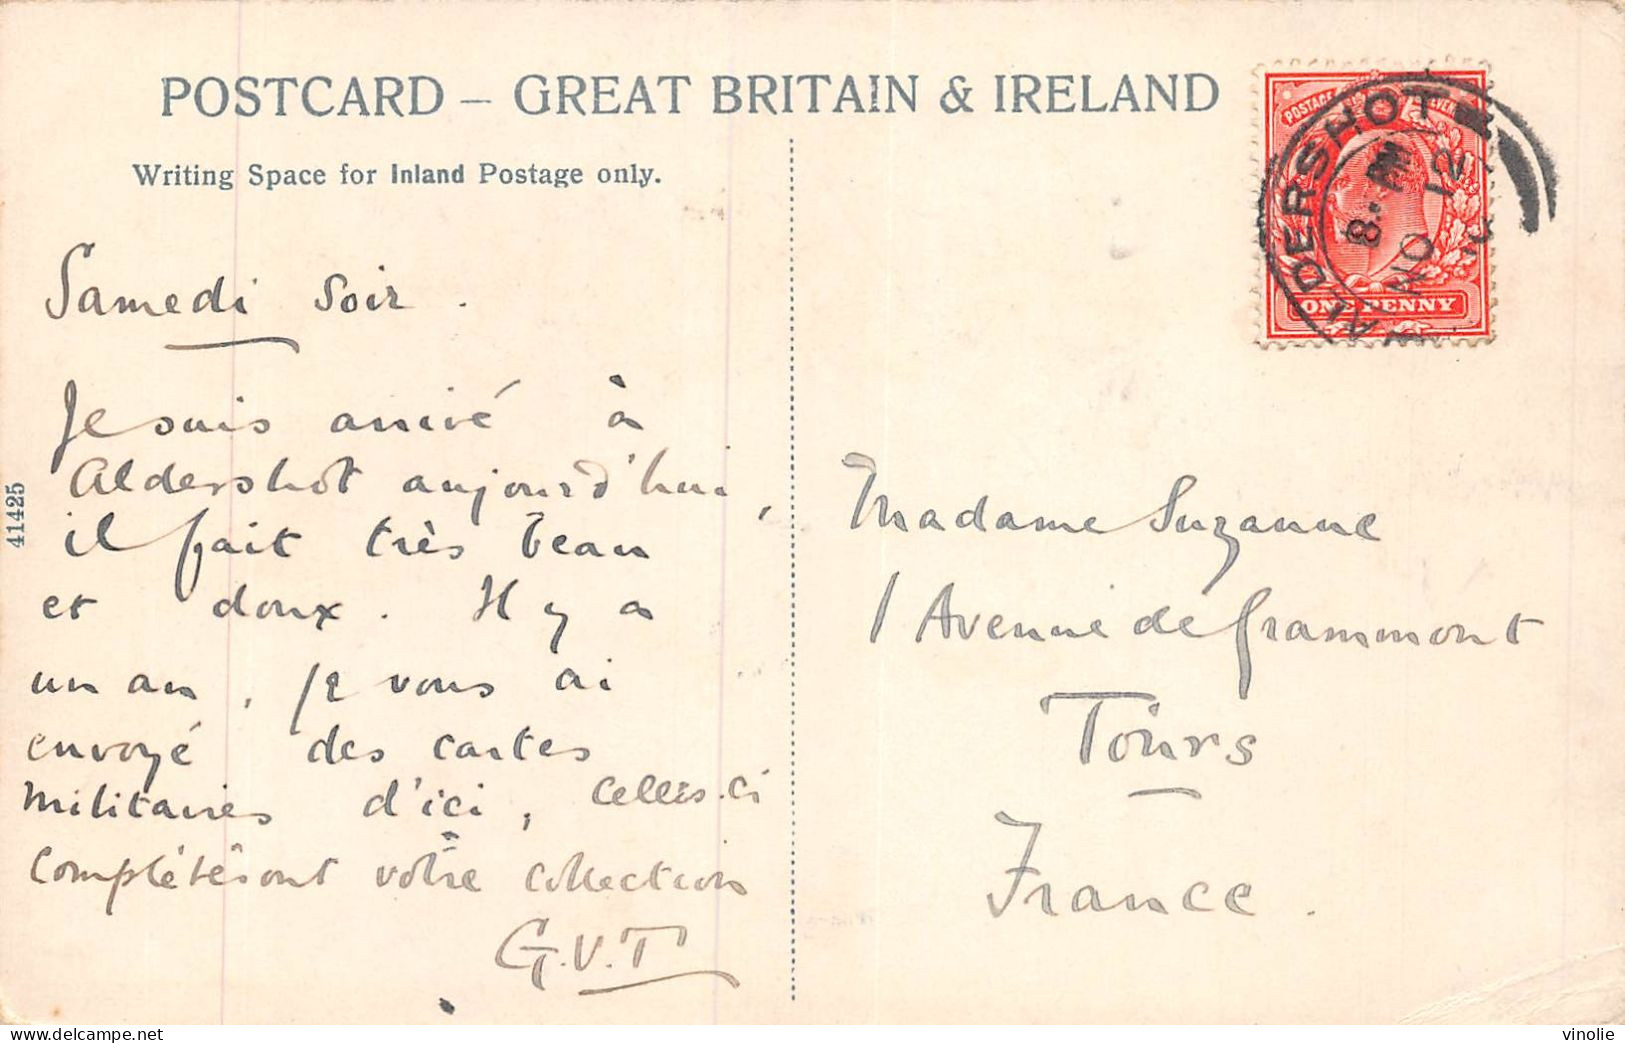 POSTCARD – GREAT BRITAIN & IRELAND
Writing Space for Inland Postage only.
POSTAGE
ONE PENNY
ALDERSHOT
8.
NO 12
Samedi soir.
Je suis arrivé à
Aldershot aujourd'hui,
il fait très beau
et doux. Il y a
un an, je vous ai
envoyé des cartes
militaires d'ici, celles-ci
complétèront votre collection
G.V.T
41425
Madame Suzanne
1 Avenue de Grammont
Tours
France.
vinolie